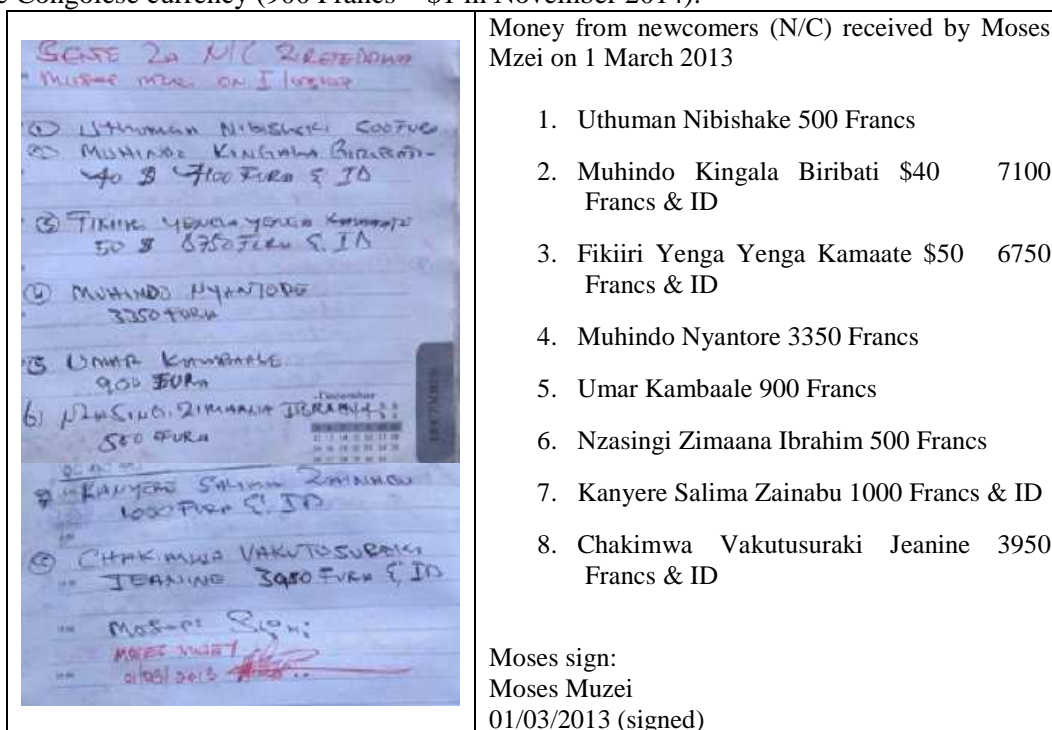 Congolese currency (900 Francs = $1 in November 2014).
SENTE ZA N/C
ON 1
① Uthuman
② MUHINDO KINGALA BIRIBATI-
40 $ 7100 FURA & ID
③ YENGA YENGA
50 $ 6750 FURA & ID
④ MUHINDO NYANTORE
3350 FURA
5 UMAR KAMBAALE
900 FURA
6)
500 FFURA
December
KANYERE SALIMA ZAINABU
1000 FURA & ID
CHAKIMWA VAKUTUSURAKI
JEANINE 3950 FURA & ID
Moses Sign:
MOSES MUZEY
01/03/2013
Money from newcomers (N/C) received by Moses
Mzei on 1 March 2013
1. Uthuman Nibishake 500 Francs
2. Muhindo Kingala Biribati $40 7100
Francs & ID
3. Fikiiri Yenga Yenga Kamaate $50 6750
Francs & ID
4. Muhindo Nyantore 3350 Francs
5. Umar Kambaale 900 Francs
6. Nzasingi Zimaana Ibrahim 500 Francs
7. Kanyere Salima Zainabu 1000 Francs & ID
8. Chakimwa Vakutusuraki Jeanine 3950
Francs & ID
Moses sign:
Moses Muzei
01/03/2013 (signed)